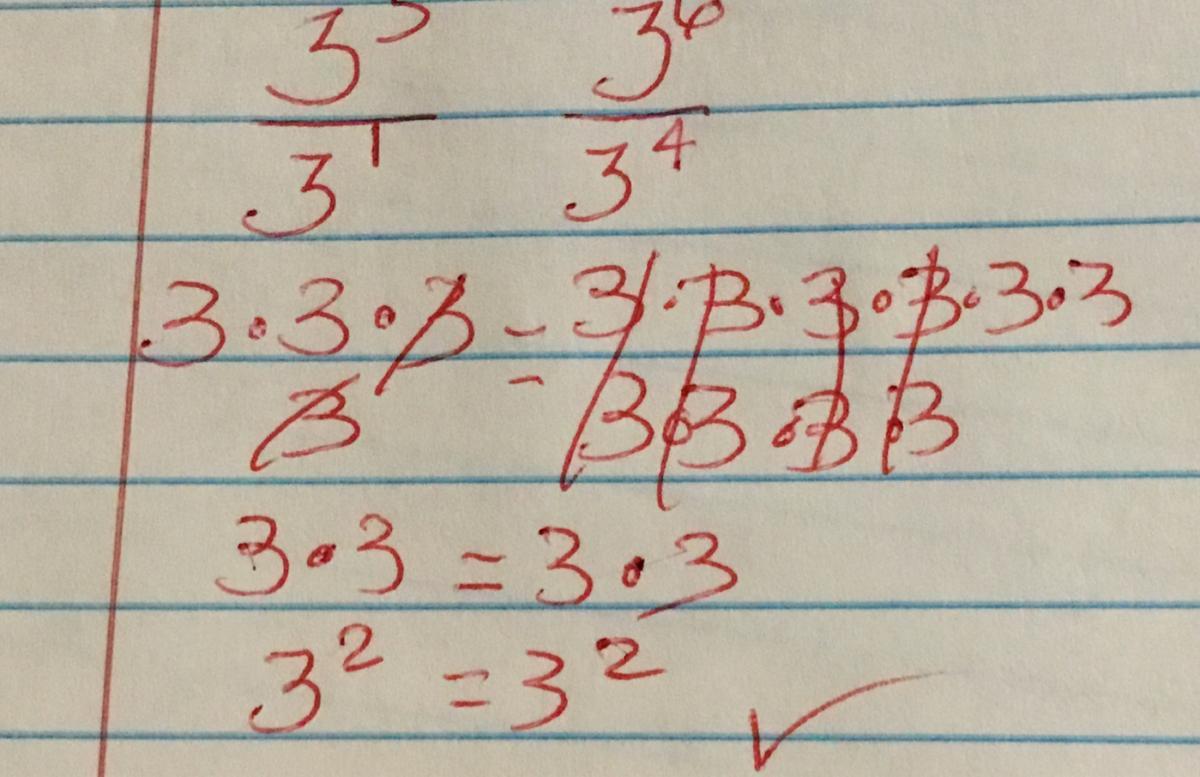 3³ 3⁶
3¹ 3⁴
3 · 3 · 3 = 3 · 3 · 3 · 3 · 3 · 3
3 3 · 3 · 3 · 3
3 · 3 = 3 · 3
3² = 3² ✓